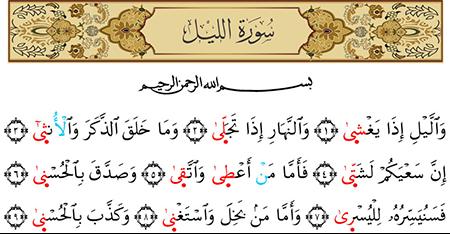 سُورَةُ اللَّيْل
بِسْمِ اللهِ الرَّحْمٰنِ الرَّحِيمِ
وَٱلَّيْلِ إِذَا يَغْشَىٰ ﴿١﴾ وَٱلنَّهَارِ إِذَا تَجَلَّىٰ ﴿٢﴾ وَمَا خَلَقَ ٱلذَّكَرَ وَٱلْأُنثَىٰٓ ﴿٣﴾
إِنَّ سَعْيَكُمْ لَشَتَّىٰ ﴿٤﴾ فَأَمَّا مَنْ أَعْطَىٰ وَٱتَّقَىٰ ﴿٥﴾ وَصَدَّقَ بِٱلْحُسْنَىٰ ﴿٦﴾
فَسَنُيَسِّرُهُۥ لِلْيُسْرَىٰ ﴿٧﴾ وَأَمَّا مَنۢ بَخِلَ وَٱسْتَغْنَىٰ ﴿٨﴾ وَكَذَّبَ بِٱلْحُسْنَىٰ ﴿٩﴾